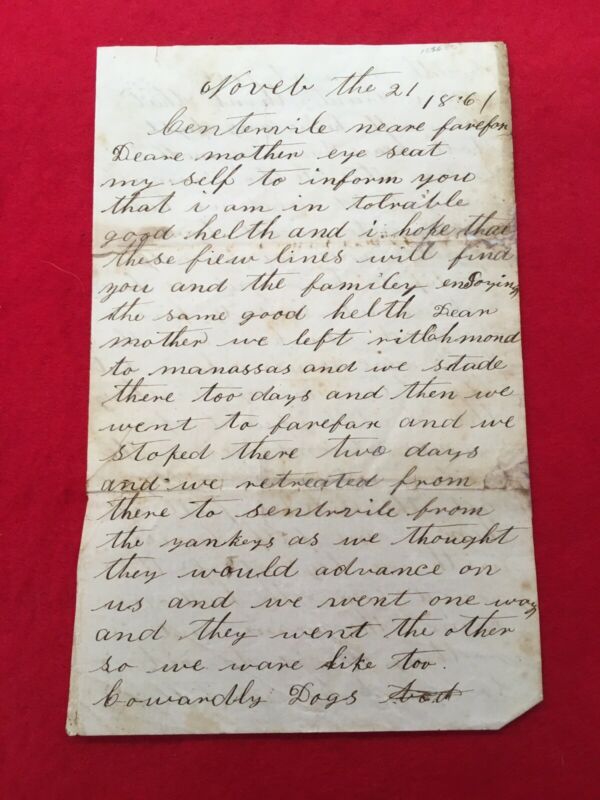 Noveb the 21 1861
Centervile neare farefax
Deare mother eye seat
my self to inform you
that i am in tolrable
good helth and i hope that
these fiew lines will find
you and the familey enJoying
the same good helth Dear
mother we left ritchmond
to manassas and we stade
there too days and then we
went to farefax and we
stoped there two days
and we retreated from
there to sentrvile from
the yankeys as we thought
they would advance on
us and we went one way
and they went the other
so we ware like too
Cowardly Dogs